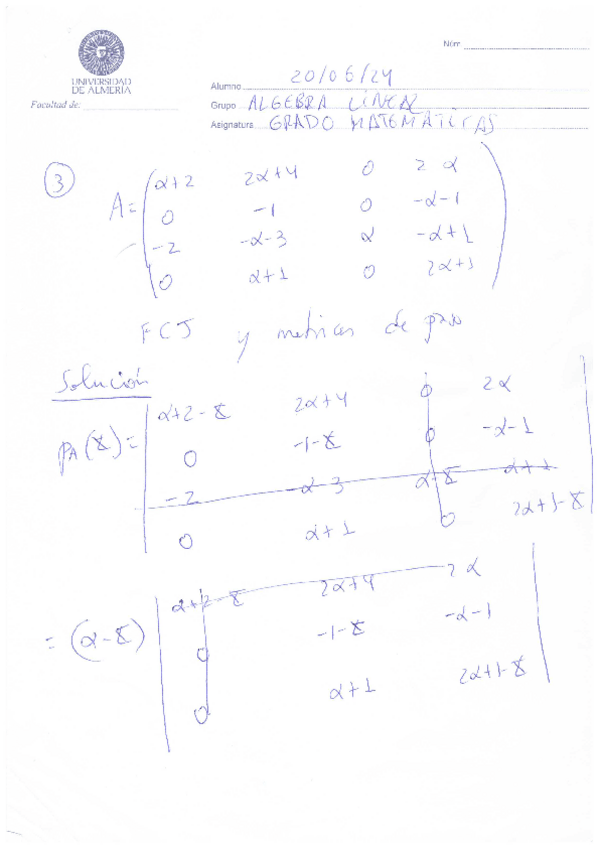 UNIVERSIDAD
DE ALMERÍA
Núm
Facultad de:
Alumno 20/06/24
Grupo ALGEBRA LINEAL
Asignatura GRADO MATEMATICAS
3
A = α+2 2α+4 0 2α
0 -1 0 -α-1
-2 -α-3 α -α+1
0 α+1 0 2α+1
FCJ y matrices de paso
Solución
α+2-x 2α+4 0 2α
pA(x) = 0 -1-x 0 -α-1
-2 -α-3 α-x
0 α+1 0 2α+1-x
α+2-x 2α+4 2α
= (α-x) 0 -1-x -α-1
0 α+1 2α+1-x